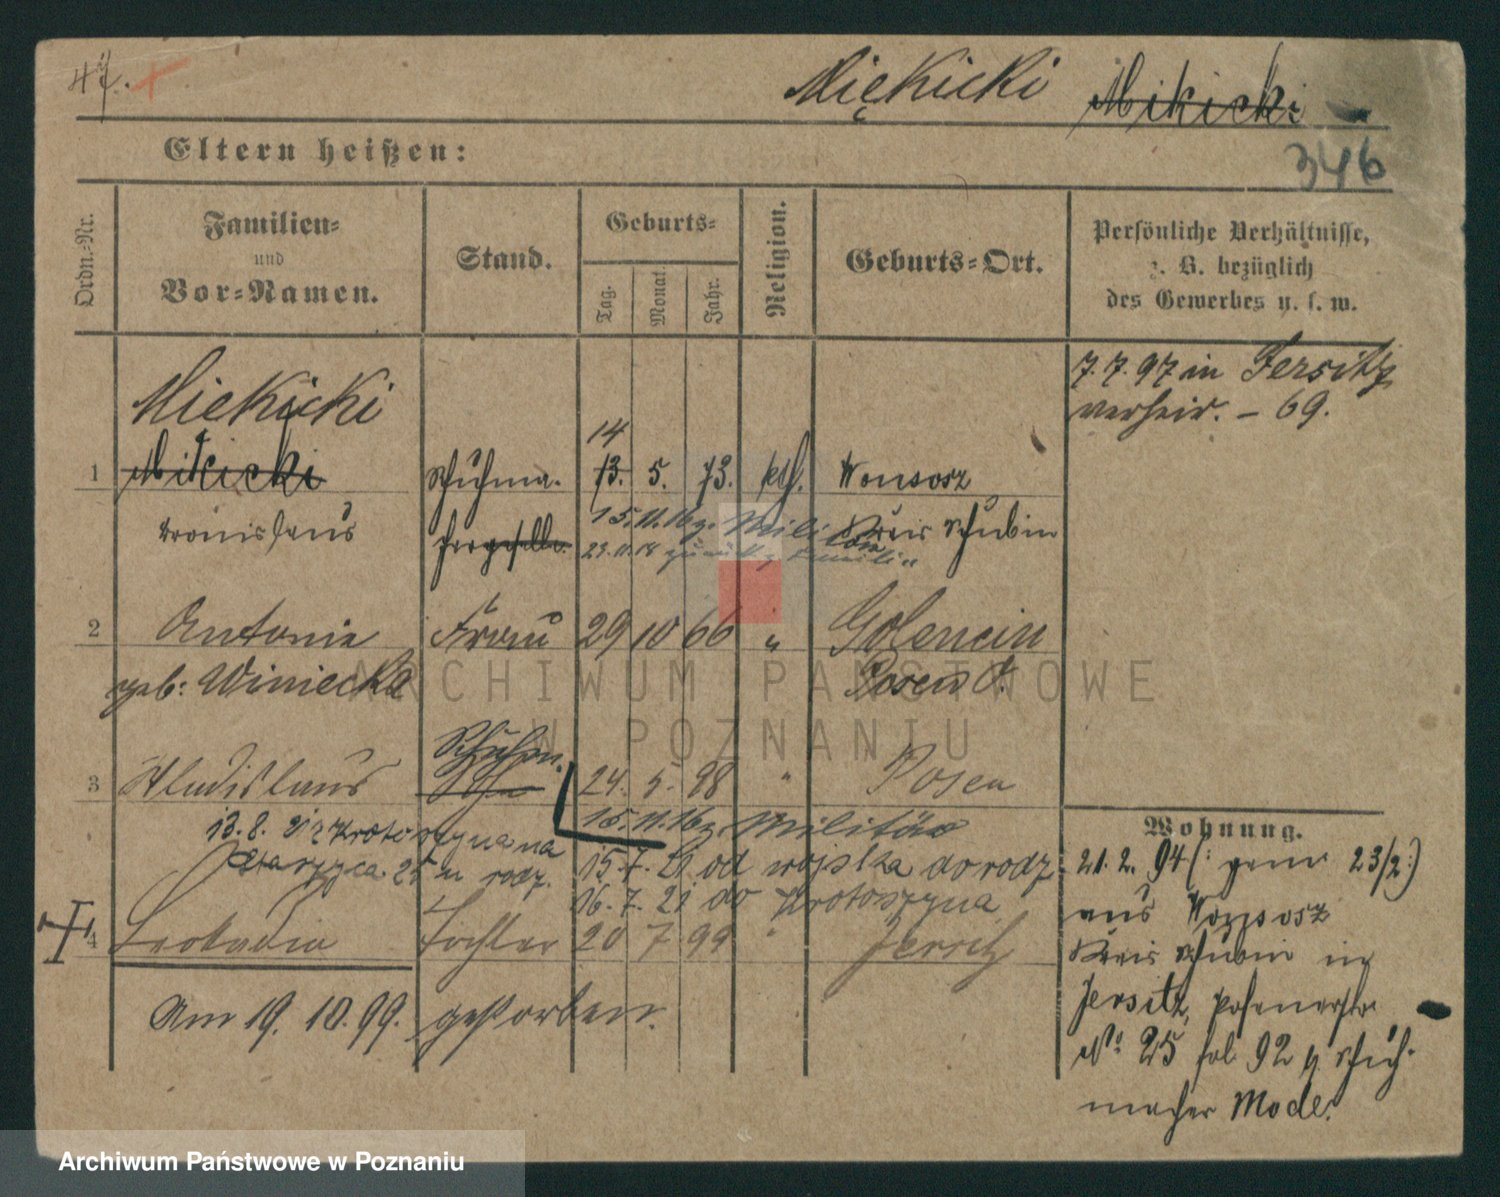 47.
Miękicki Mikicki
346
Eltern heißen:
Ordn.-Nr.
Familien-
und
Vor-Namen.
Stand.
Geburts-
Tag.
Monat.
Jahr.
Religion.
Geburts-Ort.
Persönliche Verhältnisse,
z. B. bezüglich
des Gewerbes u. s. w.
7. 7. 97 in Jersitz
verheir. – 69.
Miekicki
14
1 Mikicki Schuhma- 13. 5. 73. kth. Wonsosz
Bronislaus chergeselle 15.11.16 z. Militär Kreis Schubin
23.11.18 zurück z. Familie
2 Antonie Frau 29 10 66 " Golencin
geb: Winiecka Posen O.
Schuhm.
3 Wladislaus Sohn 24. 5. 98 " Posen
15.11.16 z. Militär
13. 8. 21 z Krotoszyna na
25 m rodz.
15.7.21 od wojska do rodz.
16.7.21 do Krotoszyna
4 Leokadia Tochter 20 7 99 " Jersitz
Am 19. 10. 99. gestorben.
Wohnung.
21. 2. 94 (: gem. 23/2 :)
aus Wonsosz
Kreis Schubin in
Jersitz, Posenerstr.
No 25 fol 92 b. Schuh-
macher Mode.
ARCHIWUM PAŃSTWOWE
W POZNANIU
Archiwum Państwowe w Poznaniu